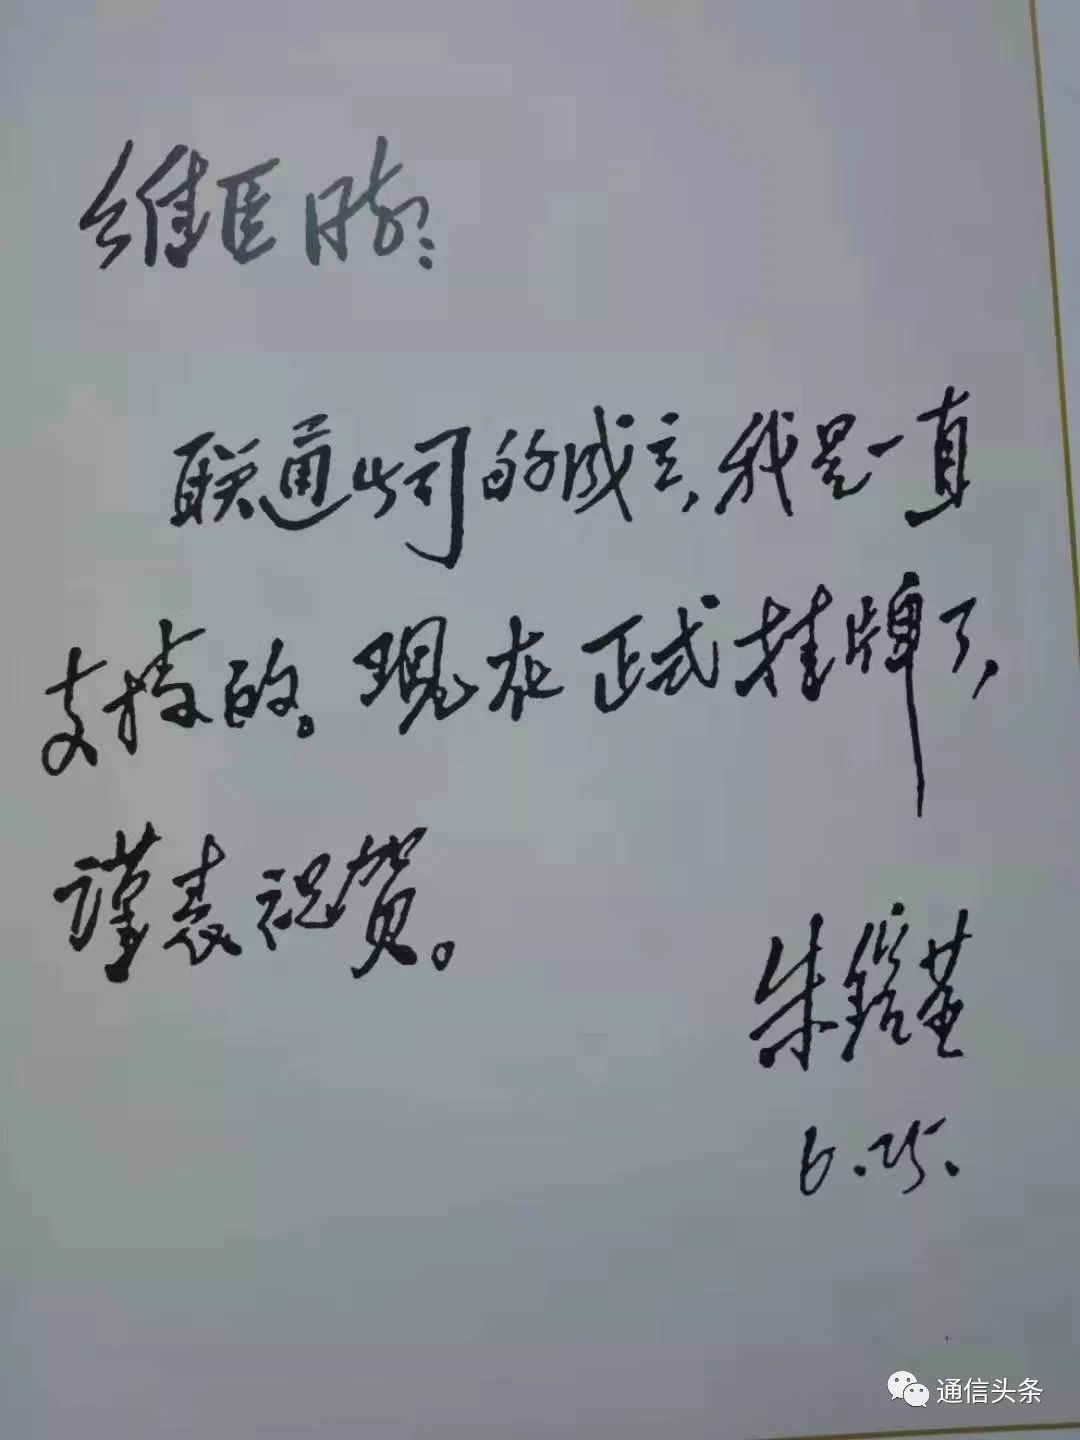 维臣同志：
联通公司的成立，我是一直
支持的。现在正式挂牌了，
謹表祝贺。
朱镕基
6.25.
通信头条